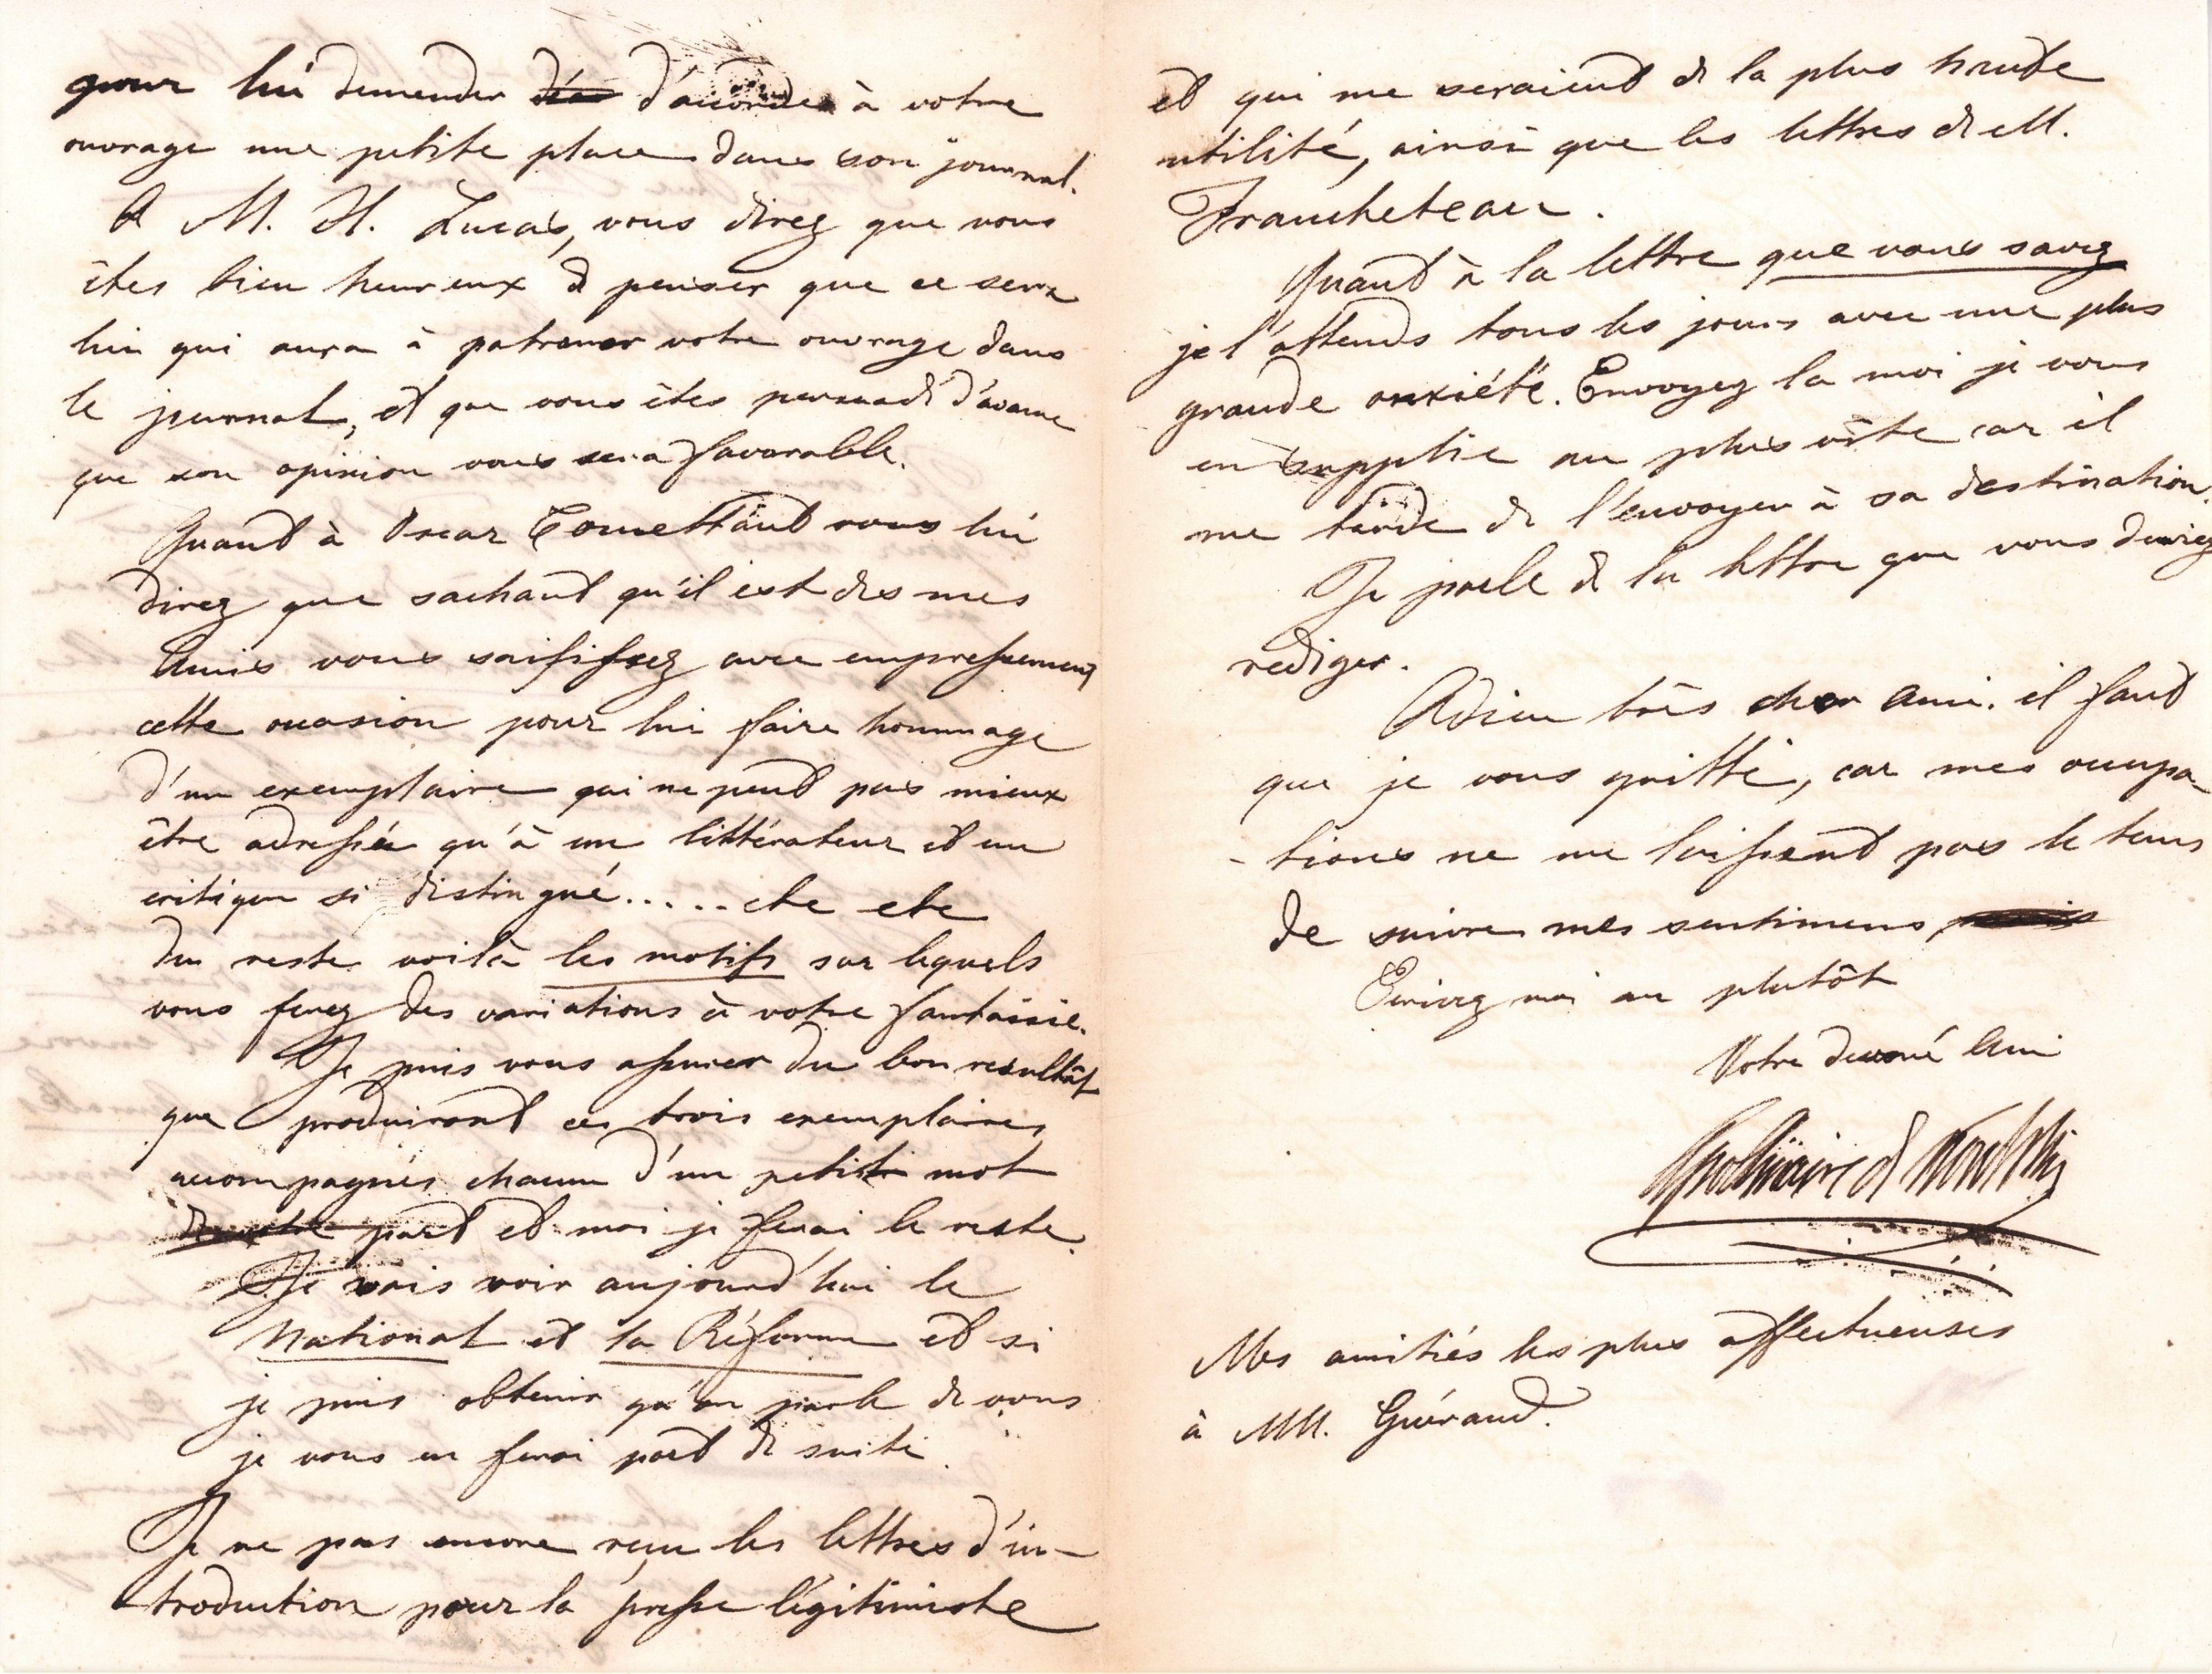 pour lui demender d'accorder à votre
ouvrage une petite place dans son journal.
A M. H. Lucas, vous direz que vous
êtes bien heureux de penser que ce sera
lui qui aura à patroner votre ouvrage dans
le journal, et que vous êtes persuadé d'avance
que son opinion vous sera favorable.
Quand à Oscar Comettant vous lui
direz que sachant qu'il est des mes
Amis vous saisissez avec empressement
cette occasion pour lui faire hommage
d'un exemplaire qui ne peut pas mieux
être adressé qu'à un littérateur et un
critique si distingué..... etc etc
du reste voilà les motifs sur lequels
vous ferez des variations à votre fantaisie.
Je puis vous assurer du bon resultât
que produiront ces trois exemplaires
accompagnés chacun d'un petit mot
de votre part et moi je ferai le reste.
Je vais voir aujourd'hui le
National et la Réforme et si
je puis obtenir qu'on parle de vous
je vous en ferai part de suite.
Je ne pas encore reçu les lettres d'in-
troduction pour la presse légitimiste
et qui me seraient de la plus haute
utilité, ainsi que les lettres de M.
Francheteau.
Quand à la lettre que vous savez
je l'attends tous les jours avec une plus
grande anxiété. Envoyez la moi je vous
en supplie au plus vîte car il
me tarde de l'envoyer à sa destination.
Je parle de la lettre que vous deviez
rediger.
Adieu très cher Ami. il faut
que je vous quitte, car mes occupa
-tions ne me laissent pas le tems
de suivre mes sentimens
Ecrivez moi au plutôt
Votre devoué Ami
Apollinaire de Kontski
Mes amitiés les plus affectueuses
à MM. Guéraud.